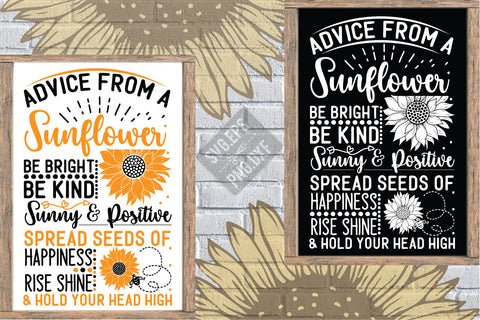 ADVICE FROM A
Sunflower
BE BRIGHT
BE KIND
Sunny & Positive
SPREAD SEEDS OF
HAPPINESS
RISE SHINE
& HOLD YOUR HEAD HIGH
SVG.EPS
PNG.DXF
ADVICE FROM A
Sunflower
BE BRIGHT
BE KIND
Sunny & Positive
SPREAD SEEDS OF
HAPPINESS
RISE SHINE
& HOLD YOUR HEAD HIGH